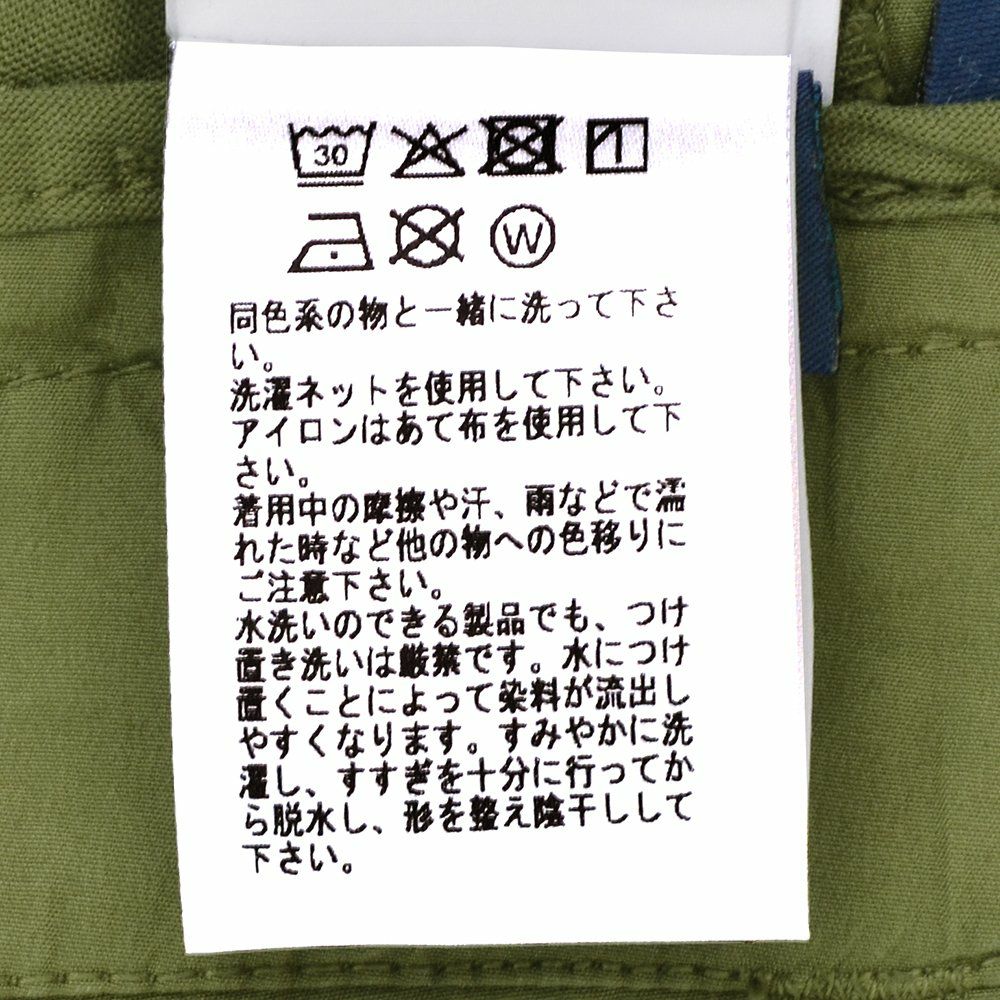 30
W
同色系の物と一緒に洗って下さ
い。
洗濯ネットを使用して下さい。
アイロンはあて布を使用して下
さい。
着用中の摩擦や汗、雨などで濡
れた時など他の物への色移りに
ご注意下さい。
水洗いのできる製品でも、つけ
置き洗いは厳禁です。水につけ
置くことによって染料が流出し
やすくなります。すみやかに洗
濯し、すすぎを十分に行ってか
ら脱水し、形を整え陰干しして
下さい。